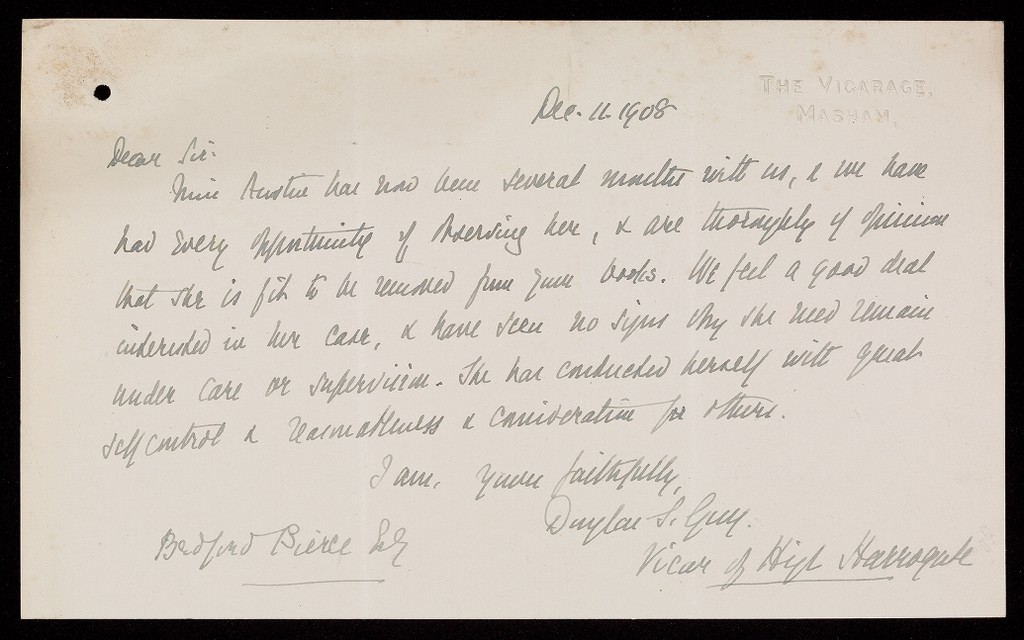 THE VICARAGE,
MASHAM.
Dec. 11. 1908
Dear Sir.
Miss Austin has now been several months with us, & we have
had every opportunity of observing her, & are thoroughly of opinion
that she is fit to be removed from your books. We feel a good deal
interested in her case, & have seen no signs why she need remain
under care or supervision. She has conducted herself with great
self control & reasonableness & consideration for others.
I am. Yours faithfully,
S. Guy.
Vicar of High Harrogate
Bedford Pierce Esq